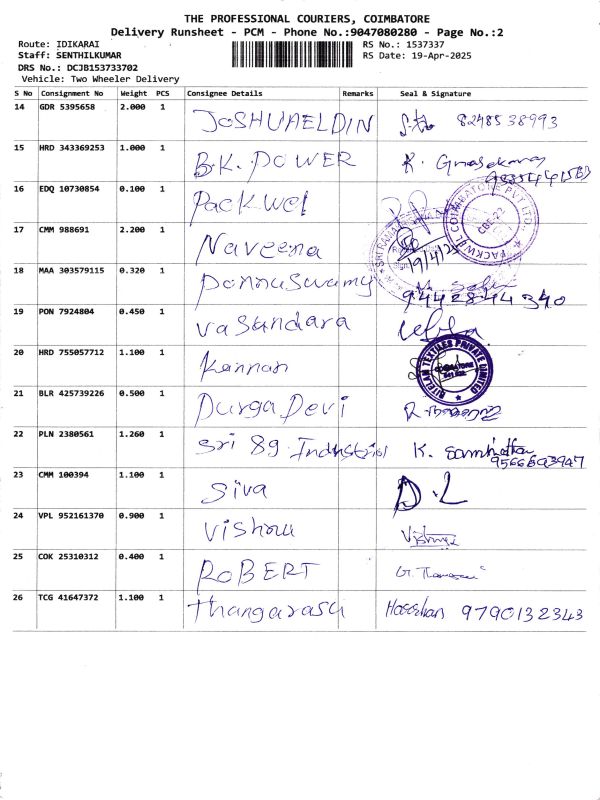 THE PROFESSIONAL COURIERS, COIMBATORE
Delivery Runsheet - PCM - Phone No.:9047080280 - Page No.:2
Route: IDIKARAI RS No.: 1537337
Staff: SENTHILKUMAR RS Date: 19-Apr-2025
DRS No.: DCJB153733702
Vehicle: Two Wheeler Delivery
S No Consignment No Weight PCS Consignee Details Remarks Seal & Signature
14 GDR 5395658 2.000 1 JOSHUAELDIN 8248538993
15 HRD 343369253 1.000 1 B.K. POWER K. Gunasekaran
16 EDQ 10730854 0.100 1 Packwel PACKWEL COIMBATORE PVT LTD.
17 CMM 988691 2.200 1 Naveena 19/4/25
18 MAA 303579115 0.320 1 Ponnuswamy 9442844340
19 PON 7924804 0.450 1 Vasundara
20 HRD 755057712 1.100 1 Kannan TEXTILES PRIVATE LIMITED
21 BLR 425739226 0.500 1 Durga Devi
22 PLN 2380561 1.260 1 Sri 89 Industrial K.
9566693947
23 CMM 100394 1.100 1 Siva D.L
24 VPL 952161370 0.900 1 Vishnu
25 COK 25310312 0.400 1 ROBERT
26 TCG 41647372 1.100 1 Thangarasu 9790132343